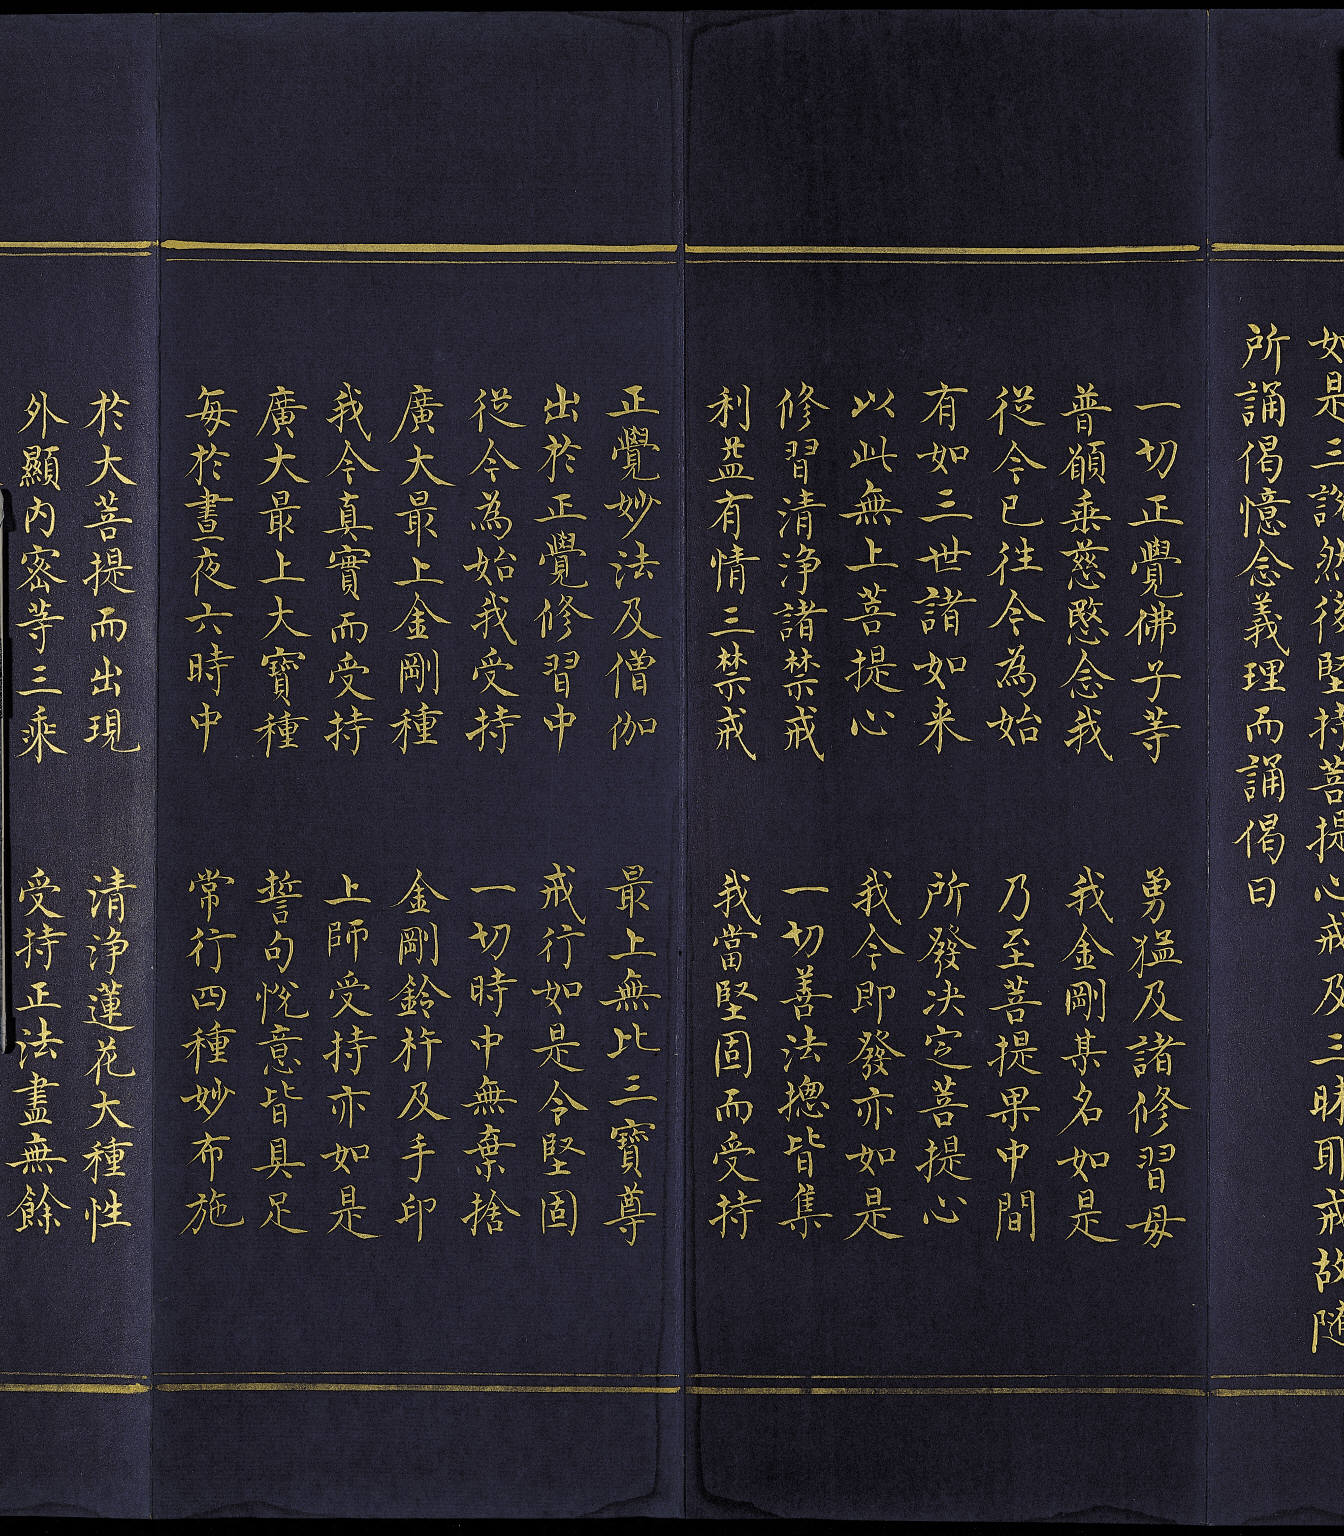 如是三說然後堅持菩提心戒及三昧耶戒故隨
所誦偈憶念義理而誦偈曰
一切正覺佛子等　勇猛及諸修習毋
普願乗慈愍念我　我金剛某名如是
從今已往今為始　乃至菩提果中間
有如三世諸如来　所發决定菩提心
以此無上菩提心　我今即發亦如是
修習清浄諸禁戒　一切善法摠皆集
利益有情三禁戒　我當堅固而受持
正覺妙法及僧伽　最上無比三寶尊
出於正覺修習中　戒行如是令堅固
從今為始我受持　一切時中無棄捨
廣大最上金剛種　金剛鈴杵及手印
我今真實而受持　上師受持亦如是
廣大最上大寶種　誓句悅意皆具足
每於晝夜六時中　常行四種妙布施
於大菩提而出現　清浄蓮花大種性
外顯内密等三乘　受持正法盡無餘